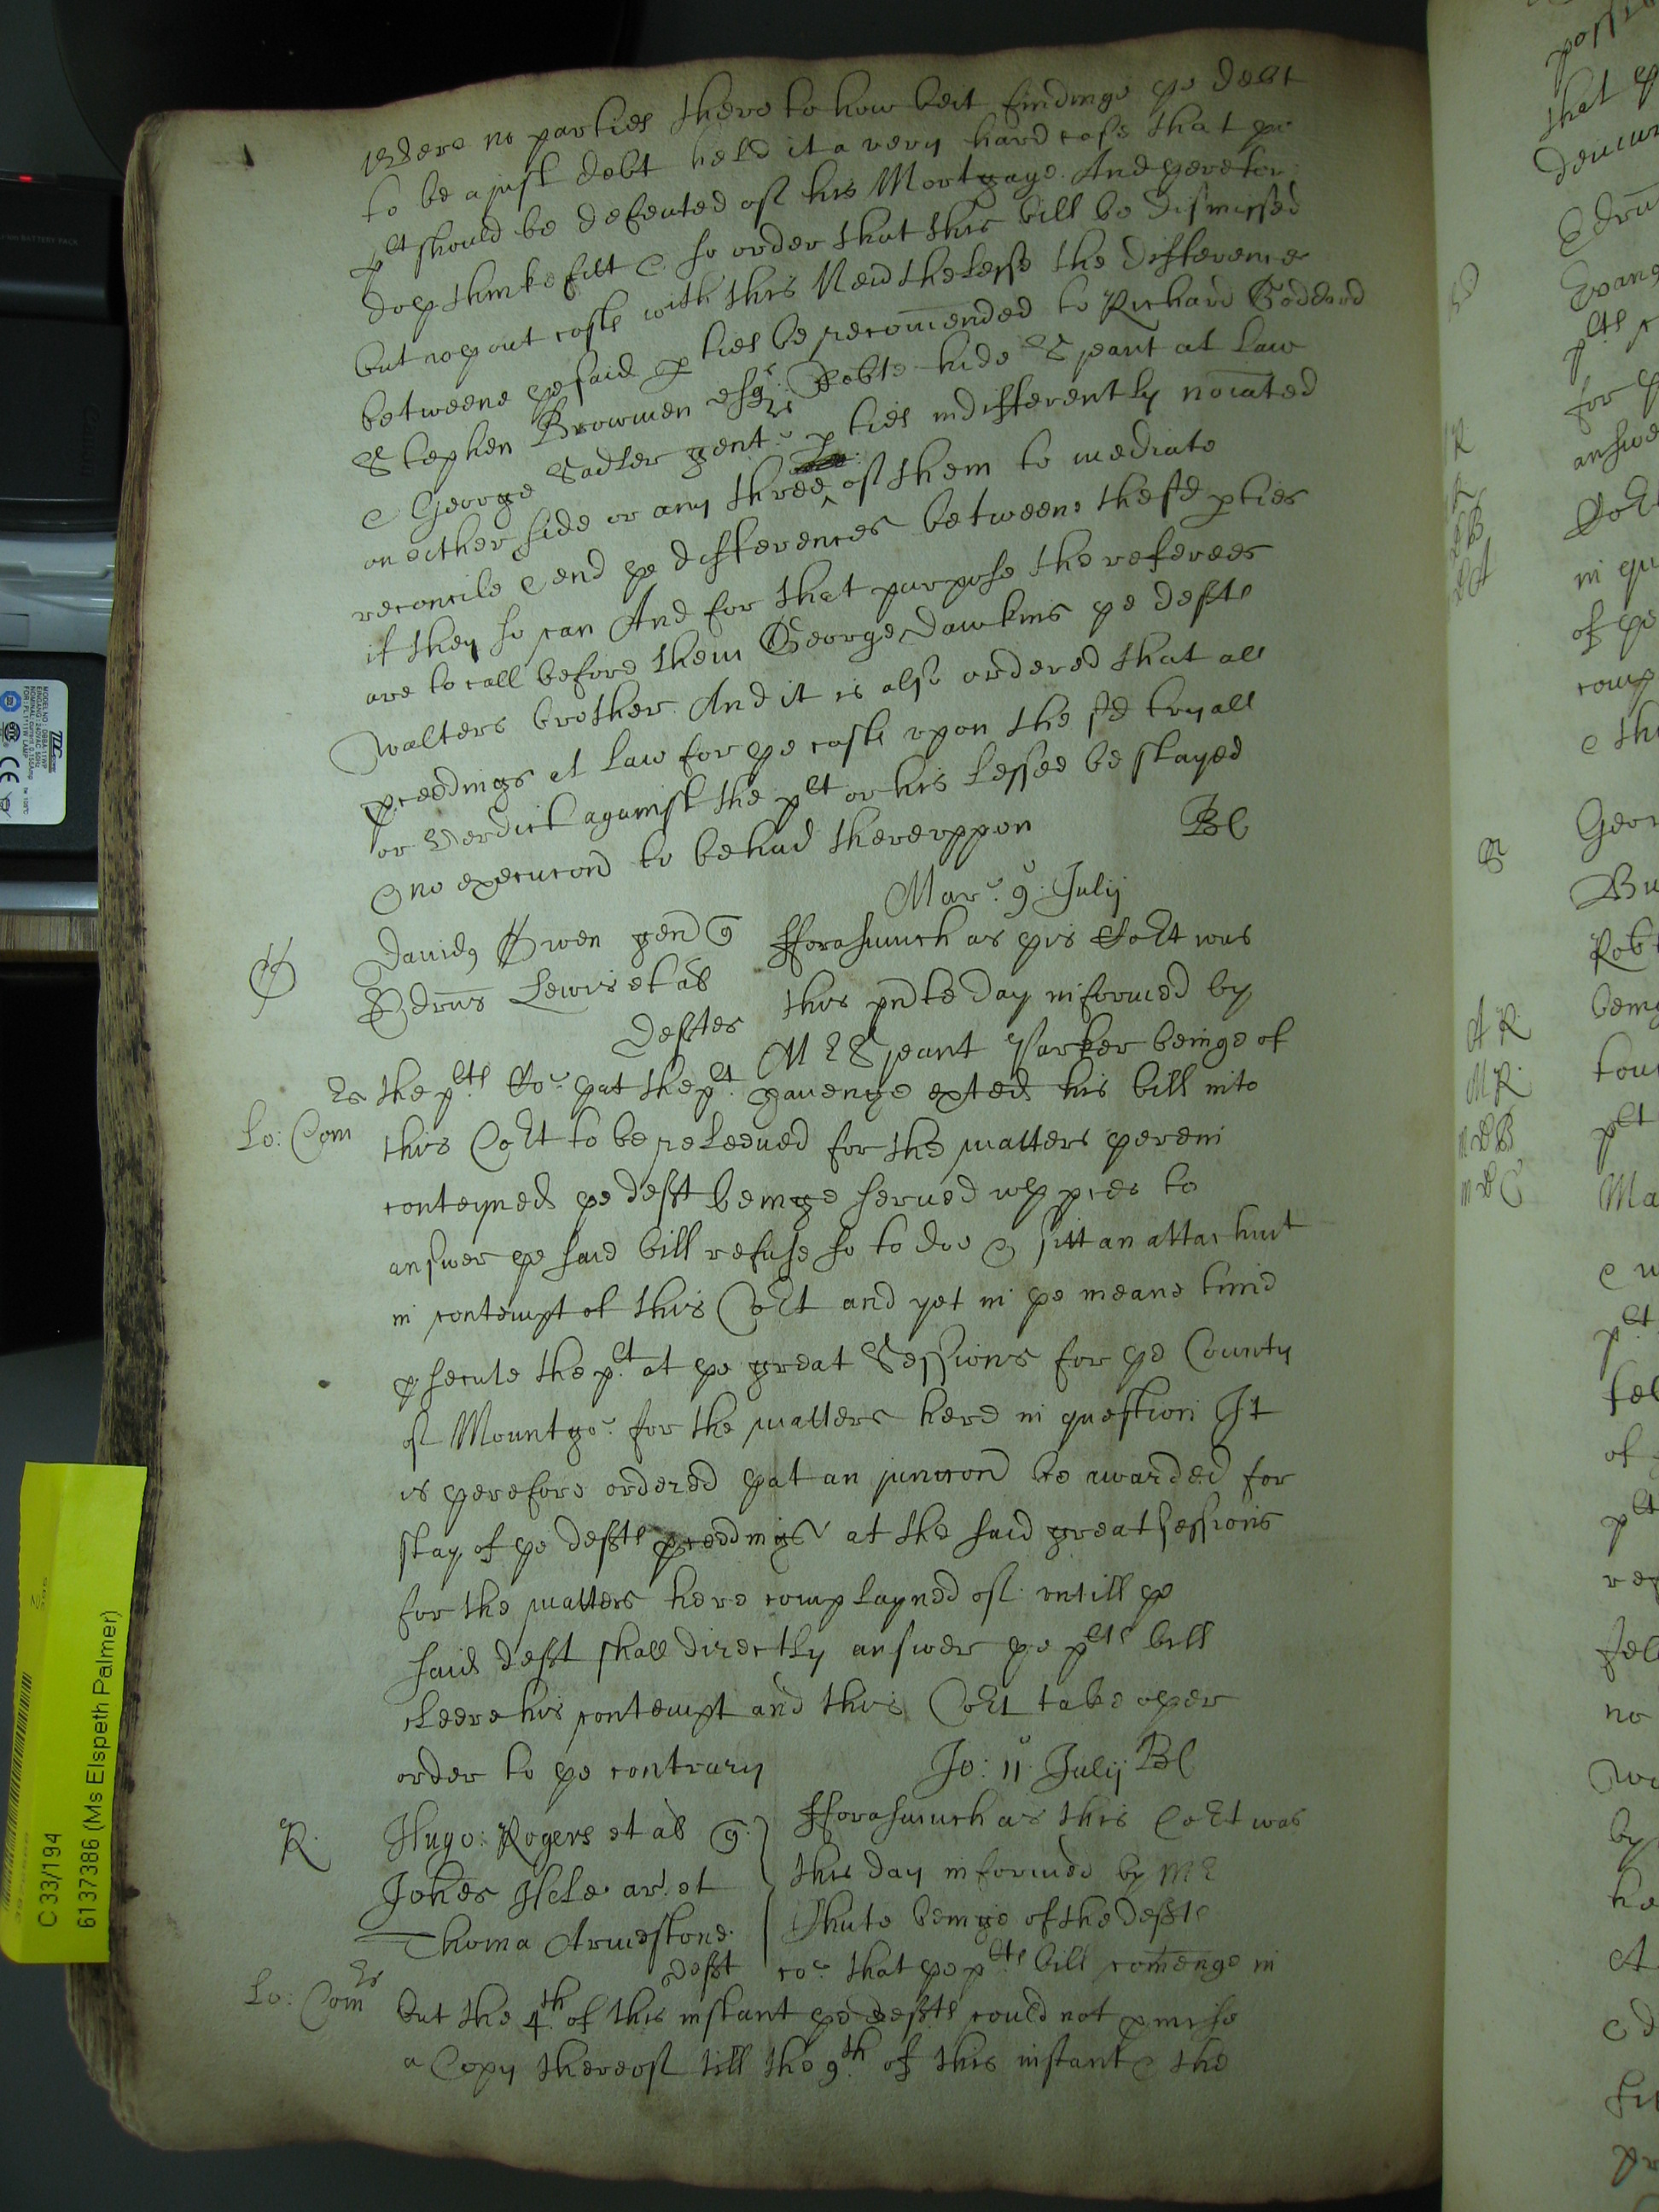 were no parties thereto howbeit findinge ye debt
to be a just debt held it a very hard case that ye
plt should be defeated of his Mortgage. And yerefore
doth thinke fitt & so order that this bill be dismissed
but wthout costs with this Nevrthelesse the difference
betweene ye said pties be recomended to Richard Goddard
Stephen Browmen esqrs Robte hide Sjeant at Law
& George Sadler gent pties indifferently noiated
on either side or any three of them to mediate
reconcile & end ye differences betweene the sd pties
if they so can And for that purpose the referees
are to call before them George Dawkins ye defts
Walters brother. And it is also ordered that all
pceedings at Law for ye costs vpon the sd tryall
or Verdict against the plt or his lessee be stayed
& no execucon to be had therevppon Bl
Mar. 9o Julij
Dauid Owen gen q
Edrus Lewis et al
Deftes
fforasmuch as yis Cort was
this pnte day informed by
Mr Sjeant Parker beinge of
the plts Co. yat the plt haueinge exted his bill into
Lo: Comrs
this Cort to be releeued for the matters yerein
conteyned ye deft beinge serued wth pces to
answer ye said bill refuse so to doe & sitt an attachmt
in contempt of this Cort and yet in ye meane time
psecute the plt at ye great Sessions for ye County
of Mountgo. for the matters here in question It
is yerefore ordered yat an juncton be awarded for
stay of ye defts pceedings at the said great sessions
for the matters here complayned of vntill ye
said deft shall directly answer ye plts bill
cleere his contempt and this Cort take oyer
order to ye contrary
Jo: 11o Julij Bl
R
Hugo: Rogers et al q
Johes Hele ar. et
Thoma Armestone
deft
fforasmuch as this Cort was
this day informed by Mr
Chute beinge of the defts
co. that ye plts bill comenge in
Lo: Comrs
but the 4th of this instant ye defts could not pcure
a Copy thereof till the 9th of this instant & the
C 33/194
6137386 (Ms Elspeth Palmer)